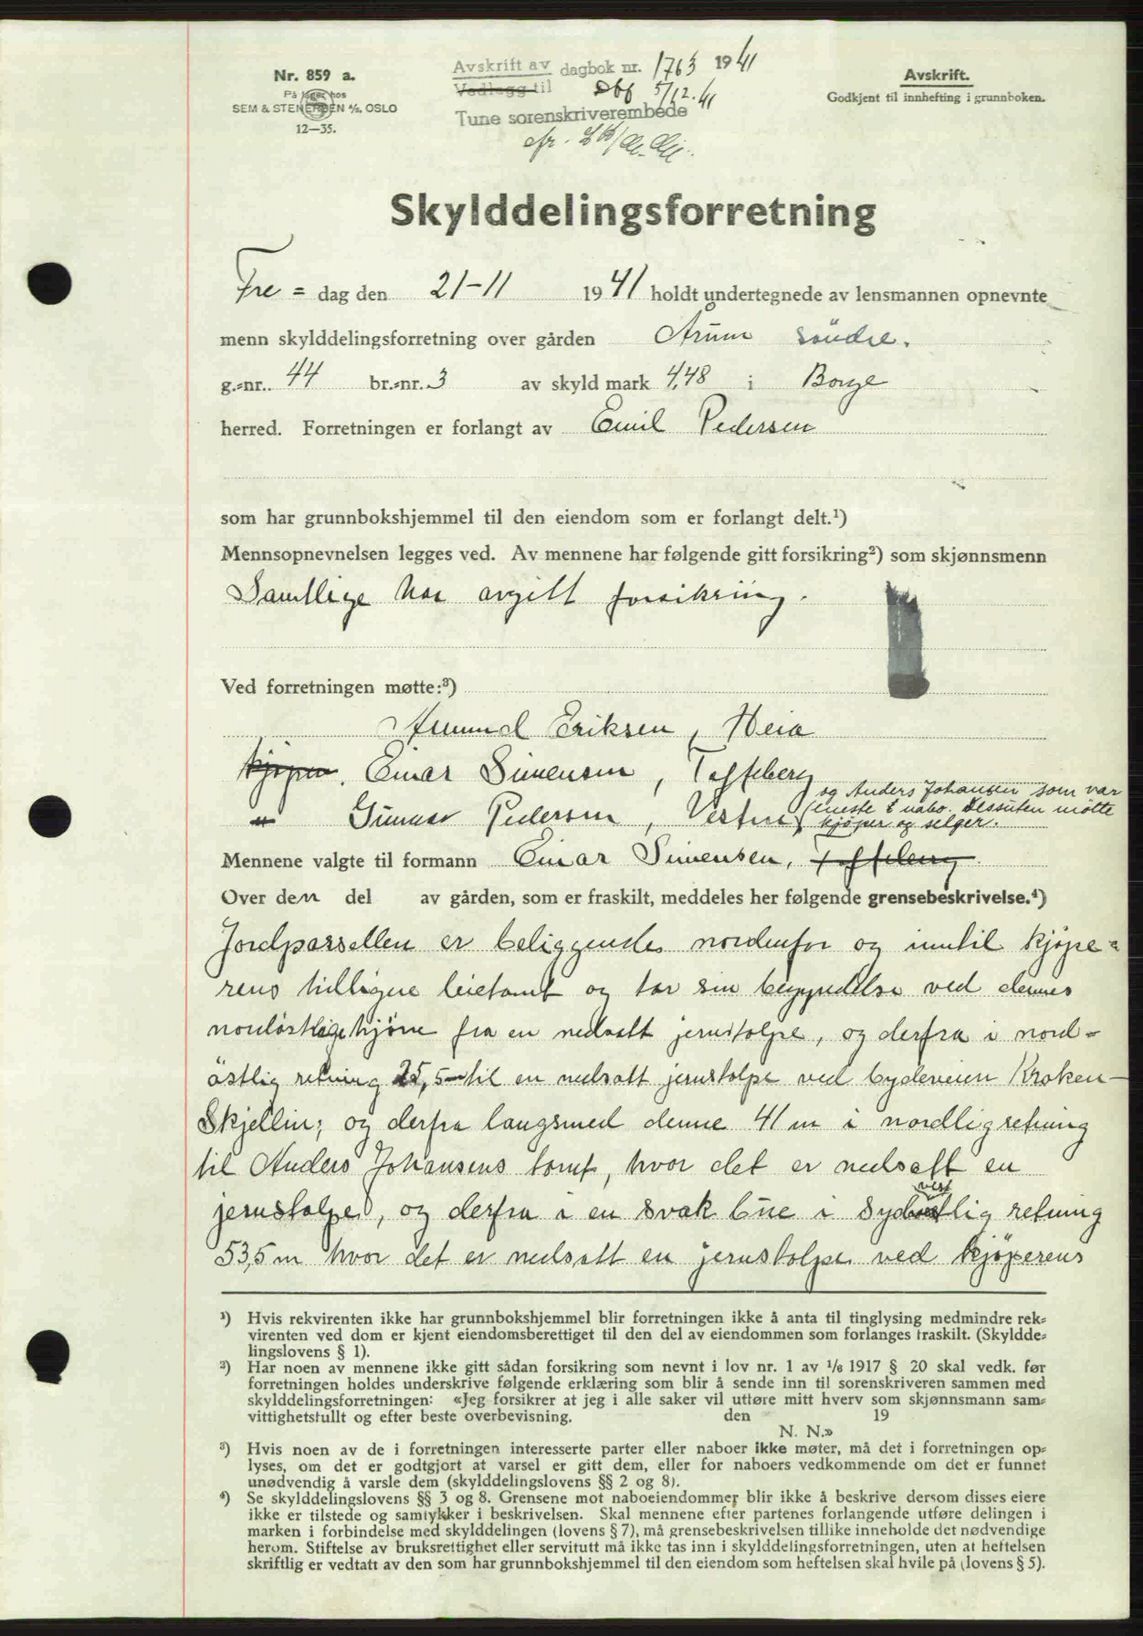 Nr. 859 a.
På lager hos
SEM & STENERSEN A/S, OSLO
12—35.
Avskrift av dagbok nr. 1763 1941
Vedlegg til Dbf 5/12.41
Tune sorenskriverembede
Avskrift.
Godkjent til innhefting i grunnboken.
Skylddelingsforretning
Fre = dag den 21-11 1941 holdt undertegnede av lensmannen opnevnte
menn skylddelingsforretning over gården Årum söndre.
g.=nr. 44 br.=nr. 3 av skyld mark 4,48 i Borge
herred. Forretningen er forlangt av Emil Pedersen
som har grunnbokshjemmel til den eiendom som er forlangt delt.¹)
Mennsopnevnelsen legges ved. Av mennene har følgende gitt forsikring²) som skjønnsmenn
Samtlige har avgitt forsikring.
Ved forretningen møtte:³)
Amund Eriksen, Heia
kjøper, Einar Simensen, Toffeberg
" Gunnar Pedersen, Vestre
og Anders Johansen som var
eneste nabo. Dessuten møtte
kjøper og selger.
Mennene valgte til formann Einar Simensen, Toffeberg.
Over den del av gården, som er fraskilt, meddeles her følgende grensebeskrivelse.⁴)
Jordparsellen er beliggende nordenfor og inntil kjøpe=
rens tidligere leietomt og tar sin begyndelse ved dennes
nordöstlige hjörne fra en nedsatt jernstolpe, og derfra i nord=
östlig retning 25,5 m til en nedsatt jernstolpe ved bydeveien Kroken-
Skjellin; og derfra langsmed denne 41 m i nordlig retning
til Anders Johansens tomt, hvor det er nedsatt en
jernstolpe, og derfra i en svak bue i sydvestlig retning
53,5 m hvor det er nedsatt en jernstolpe ved kjöperens
¹) Hvis rekvirenten ikke har grunnbokshjemmel blir forretningen ikke å anta til tinglysing medmindre rek=
virenten ved dom er kjent eiendomsberettiget til den del av eiendommen som forlanges fraskilt. (Skyldde=
lingslovens § 1).
²) Har noen av mennene ikke gitt sådan forsikring som nevnt i lov nr. 1 av 1/6 1917 § 20 skal vedk. før
forretningen holdes underskrive følgende erklæring som blir å sende inn til sorenskriveren sammen med
skylddelingsforretningen: «Jeg forsikrer at jeg i alle saker vil utføre mitt hverv som skjønnsmann sam=
vittighetsfullt og efter beste overbevisning. den 19
N. N.»
³) Hvis noen av de i forretningen interesserte parter eller naboer ikke møter, må det i forretningen op=
lyses, om det er godtgjort at varsel er gitt dem, eller for naboers vedkommende om det er funnet
unødvendig å varsle dem (skylddelingslovens §§ 2 og 8).
⁴) Se skylddelingslovens §§ 3 og 8. Grensene mot naboeiendommer blir ikke å beskrive dersom disses eiere
ikke er tilstede og samtykker i beskrivelsen. Skal mennene efter partenes forlangende utføre delingen i
marken i forbindelse med skylddelingen (lovens § 7), må grensebeskrivelsen tillike inneholde det nødvendige
herom. Stiftelse av bruksrettighet eller servitutt må ikke tas inn i skylddelingsforretningen, uten at heftelsen
skriftlig er vedtatt av den som har grunnbokshjemmel til den eiendom som heftelsen skal hvile på (lovens § 5).